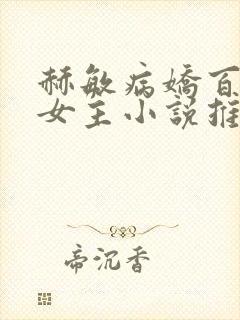 赫敏病嬌百
女主小說推
帝沉香